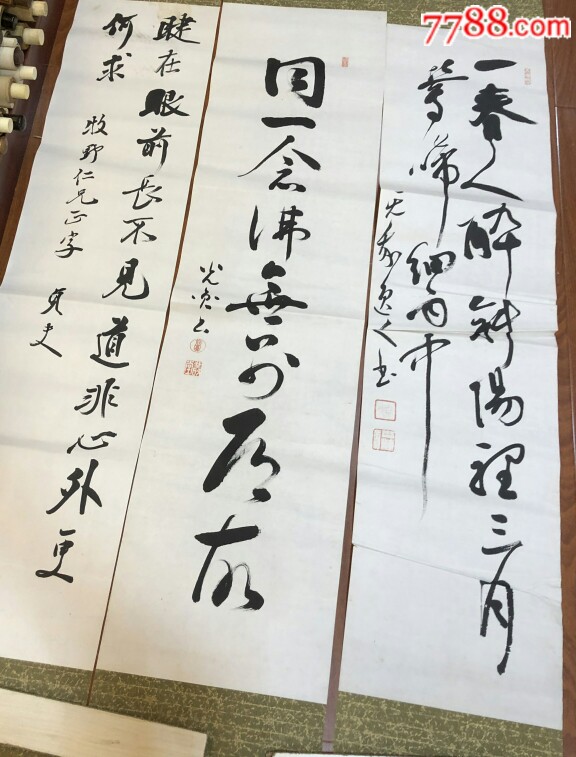 7788.com
一春人醉斜陽裡三月
鶯啼細雨中
同一念佛無別道故
睫在眼前長不見道非心外更
何求
牧野仁兄正字